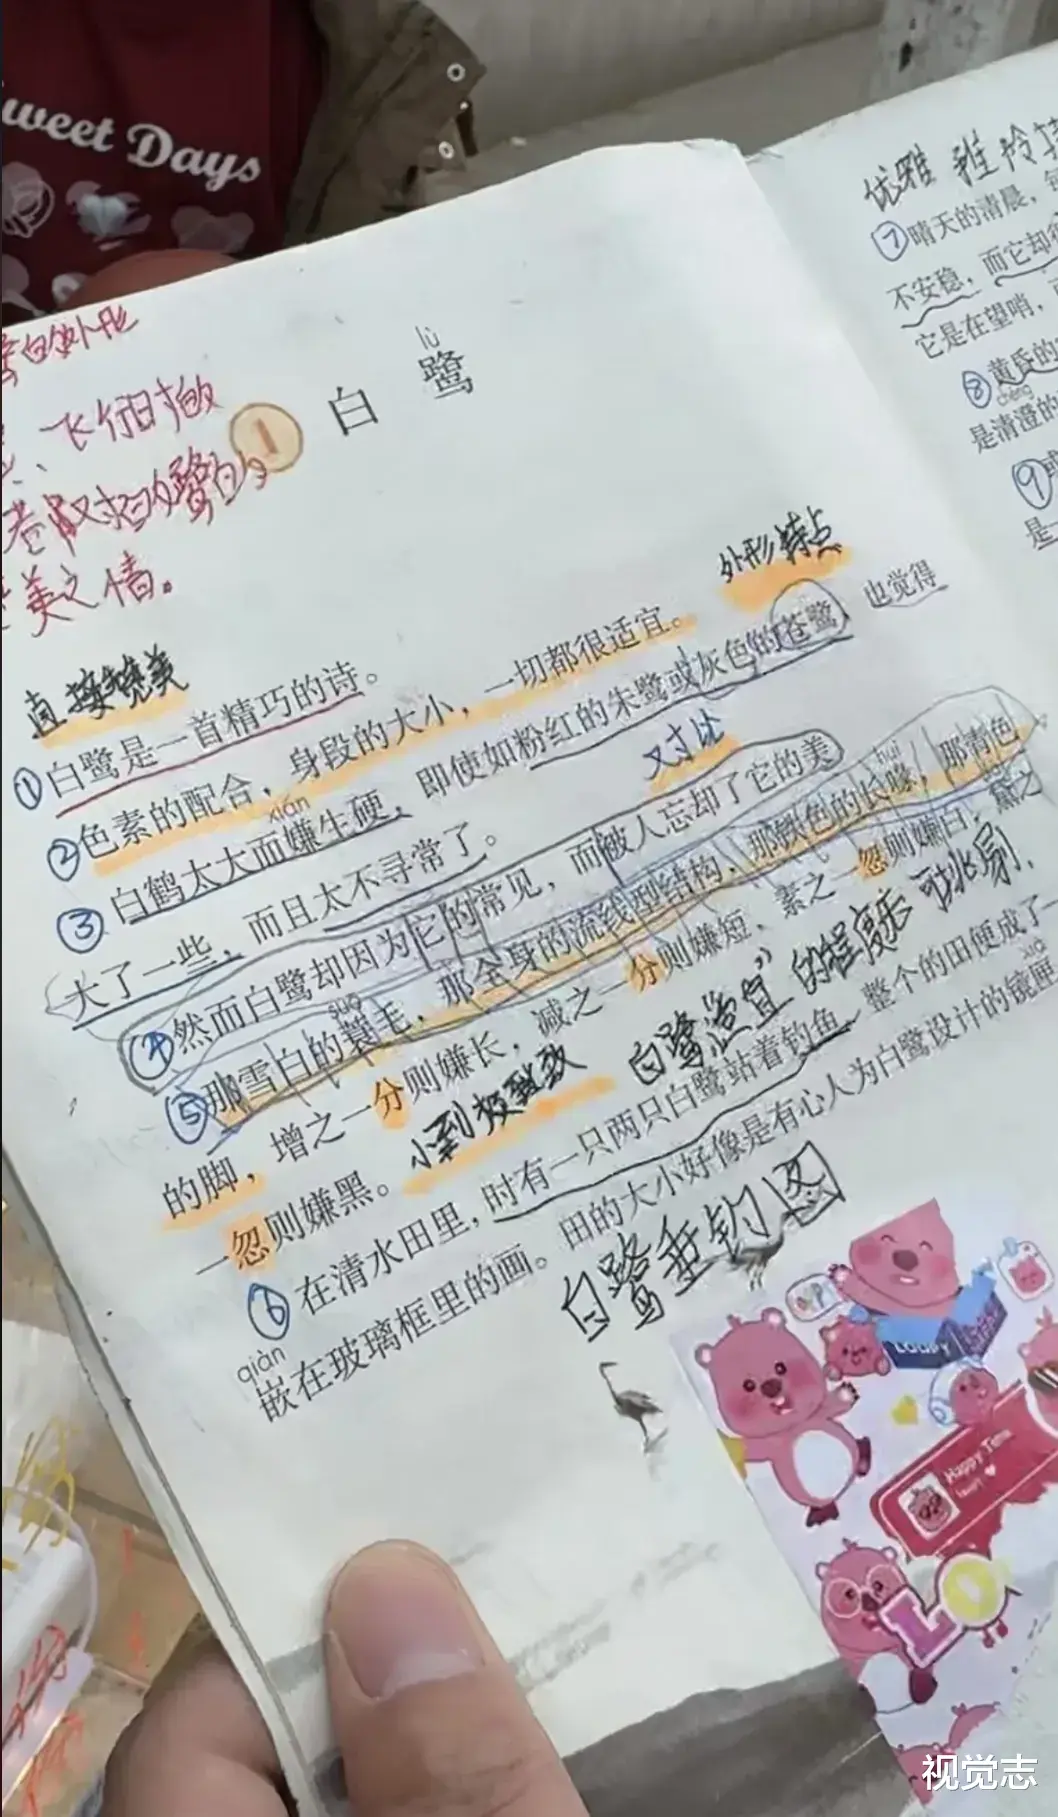 Sweet Days
飞行时
美之情。
lù
1 白鹭
外形特点
直接赞美
①白鹭是一首精巧的诗。
②色素的配合，身段的大小，一切都很适宜。
xián
③白鹤太大而嫌生硬，即使如粉红的朱鹭或灰色的苍鹭，也觉得
又寸比
大了一些，而且太不寻常了。
④然而白鹭却因为它的常见，而被人忘却了它的美
suō
huì
⑤那雪白的蓑毛，那全身的流线型结构，那铁色的长喙，那青色
的脚，增之一分则嫌长，减之一分则嫌短，素之一忽则嫌白，黛之
一忽则嫌黑。
小到极致 白鹭适宜 的程度
⑥在清水田里，时有一只两只白鹭站着钓鱼，整个的田便成了一
qiàn
xiá
嵌在玻璃框里的画。田的大小好像是有心人为白鹭设计的镜匣
白鹭垂钓图
Happy Time
LO
优雅
⑦晴天的清晨，
不安稳，而它却很
它是在望哨，
⑧黄昏的
chéng
是清澄的
⑨
是
视觉志